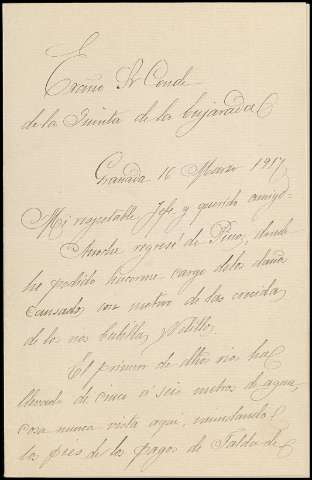 Excmo Sr Conde
de la Quinta de la Enjarada
Granada 16 Marzo 1917
Mi respetable Jefe y querido amigo:
Anoche regresé de Pino, donde
he podido hacerme cargo de los daños
causados con motivo de las crecidas
de los rios Cubillas y Velillos.
El primero de dichos rios ha
llevado de cinco á seis metros de agua,
cosa nunca vista aqui, inundando
los piés de los pagos de